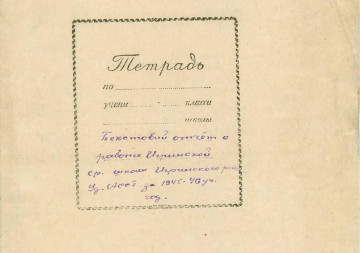 Тетрадь
по
учени класса
школы
Текстовый отчёт о
работе Игринской
ср. школы Игринского р-на
Уд. АССР за 1945-46 уч.
год.